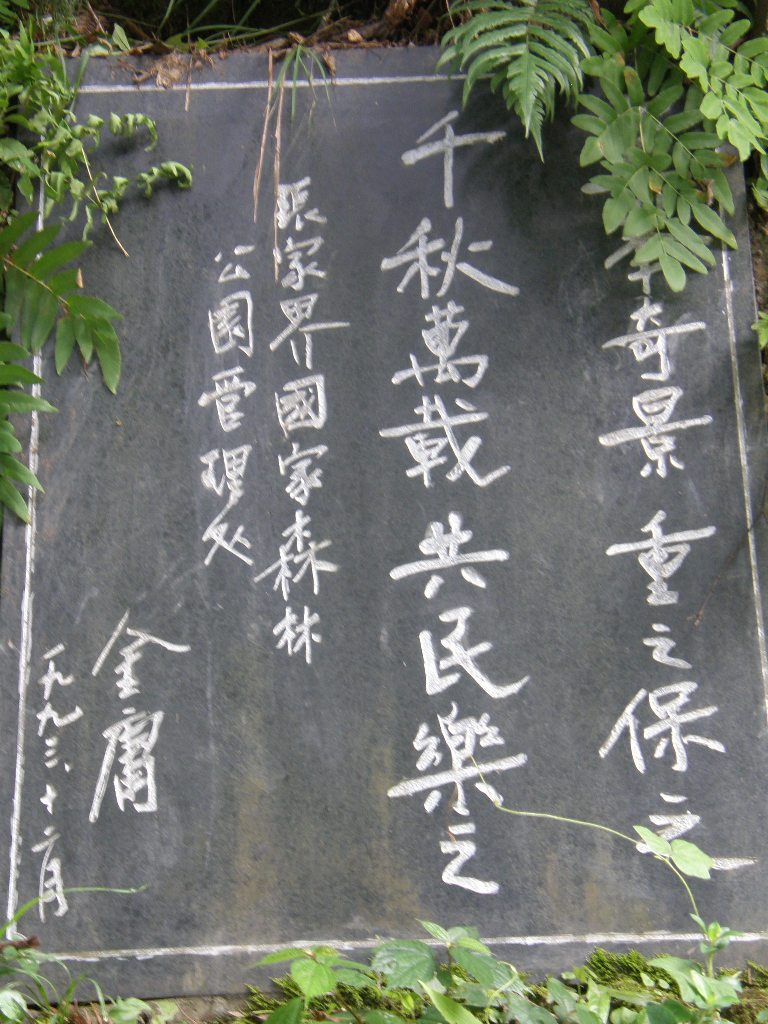 奇景重之保之
千秋萬載共民樂之
張家界國家森林
公園管理处
金庸
一九九三、十二月